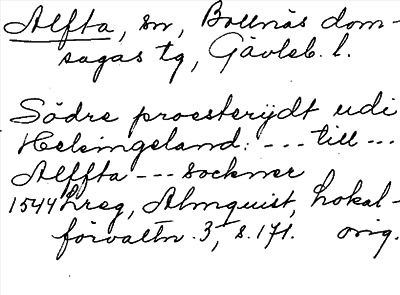 Alfta, sn, Bollnäs dom-
sagas tg, Gävleb. l.
Södre proesterijdt udi
Helsingeland: --- till ---
Alffta --- sockner
1544 hreg, Almquist, Lokal-
förvaltn. 3, s. 171. orig.